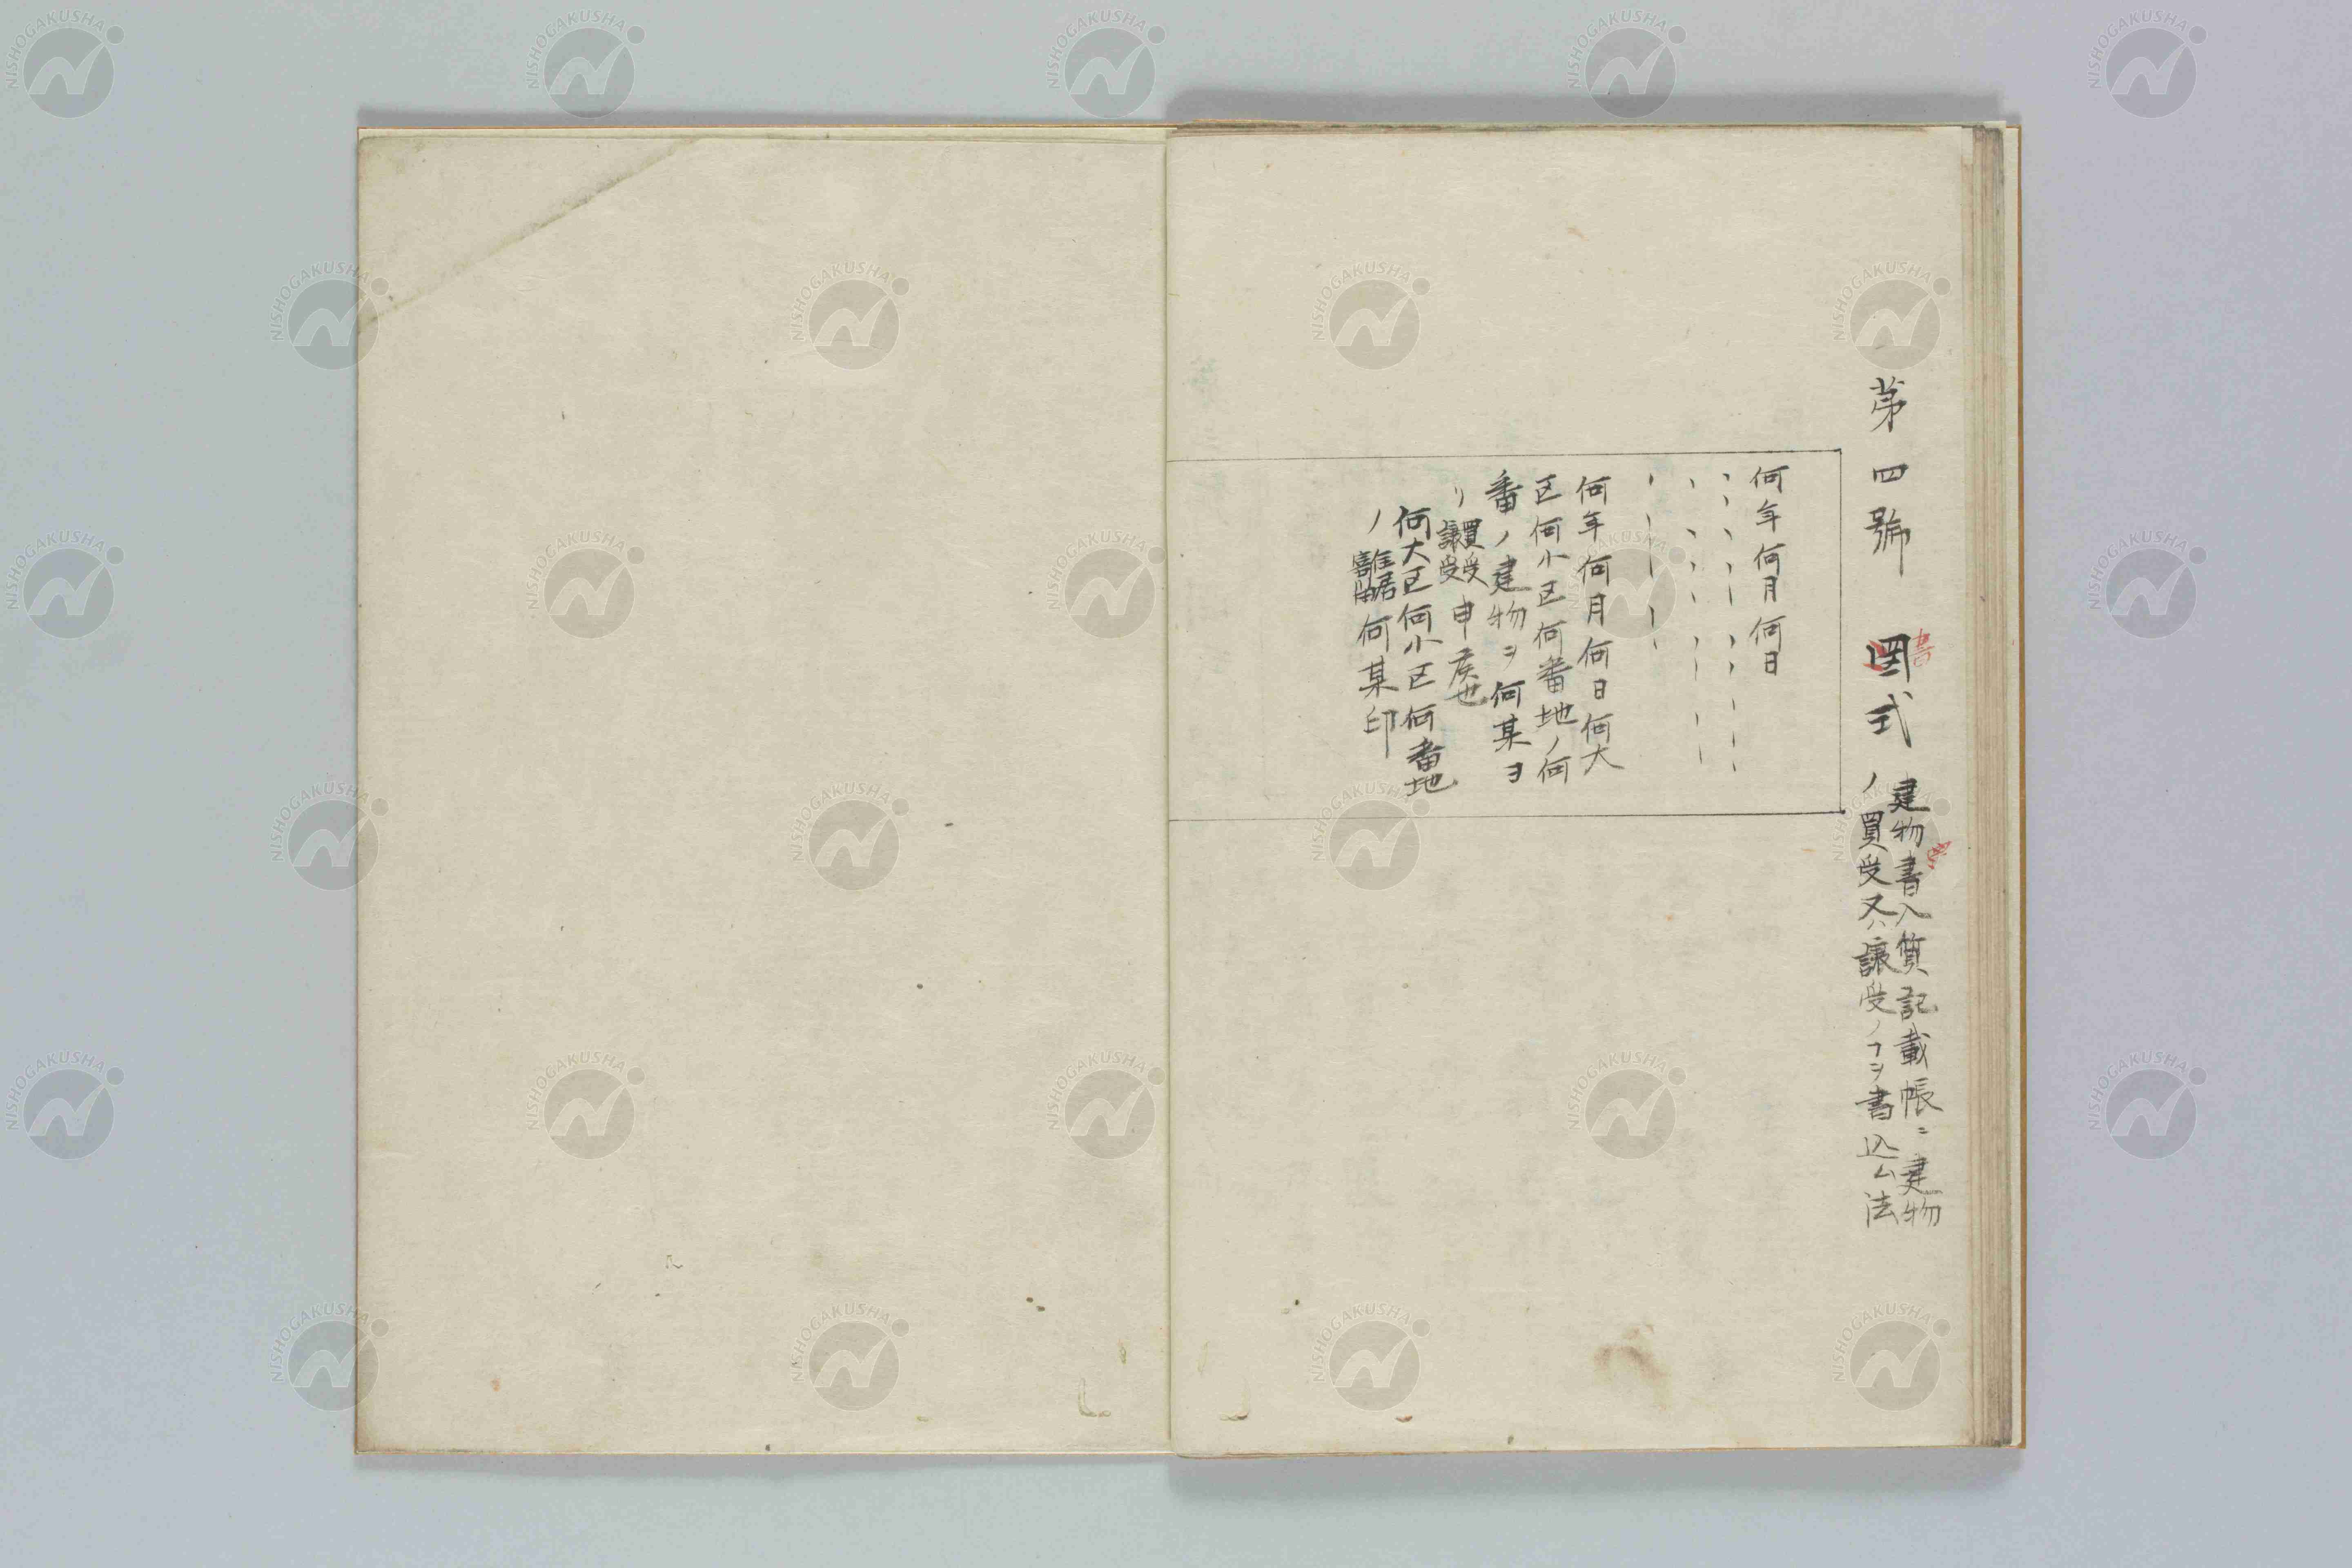 第四號 図式 建物書入質記載帳ニ建物
ノ買受又ハ譲受ノヿヲ書込ム法
書
何年何月何日
何年何月何日何大
区何小区何番地ノ何
番ノ建物ヲ何某ヨ
リ買受譲受申候也
何大区何小区何番地
ノ 何某印
NISHOGAKUSHA